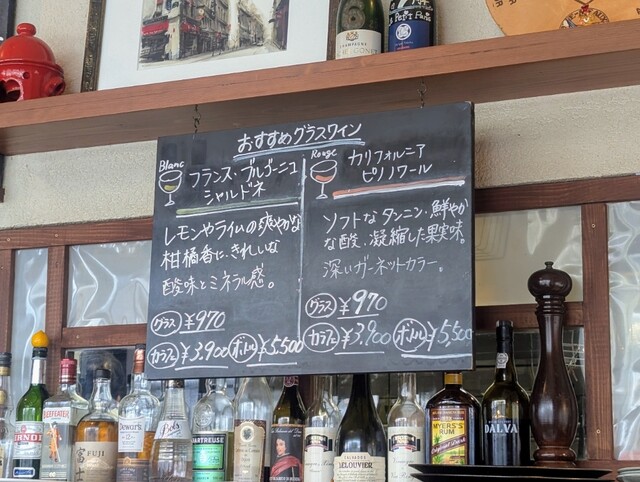 おすすめグラスワイン
Blanc
フランス・ブルゴーニュ
シャルドネ
レモンやライムの爽やかな
柑橘香に、きれいな
酸味とミネラル感。
グラス ¥970
カラフェ ¥3,900 ボトル ¥5,500
Rouge
カリフォルニア
ピノノワール
ソフトなタンニン、鮮やか
な酸、凝縮した果実味。
深いガーネットカラー。
グラス ¥970
カラフェ ¥3,900 ボトル ¥5,500
CHAMPAGNE
BEEFEATER
FUJI
Dewar's
Bols
CHARTREUSE
LELOUVIER
MYERS'S
RUM
DALVA